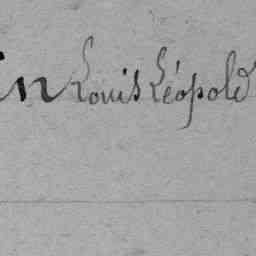 in Louis Léopold